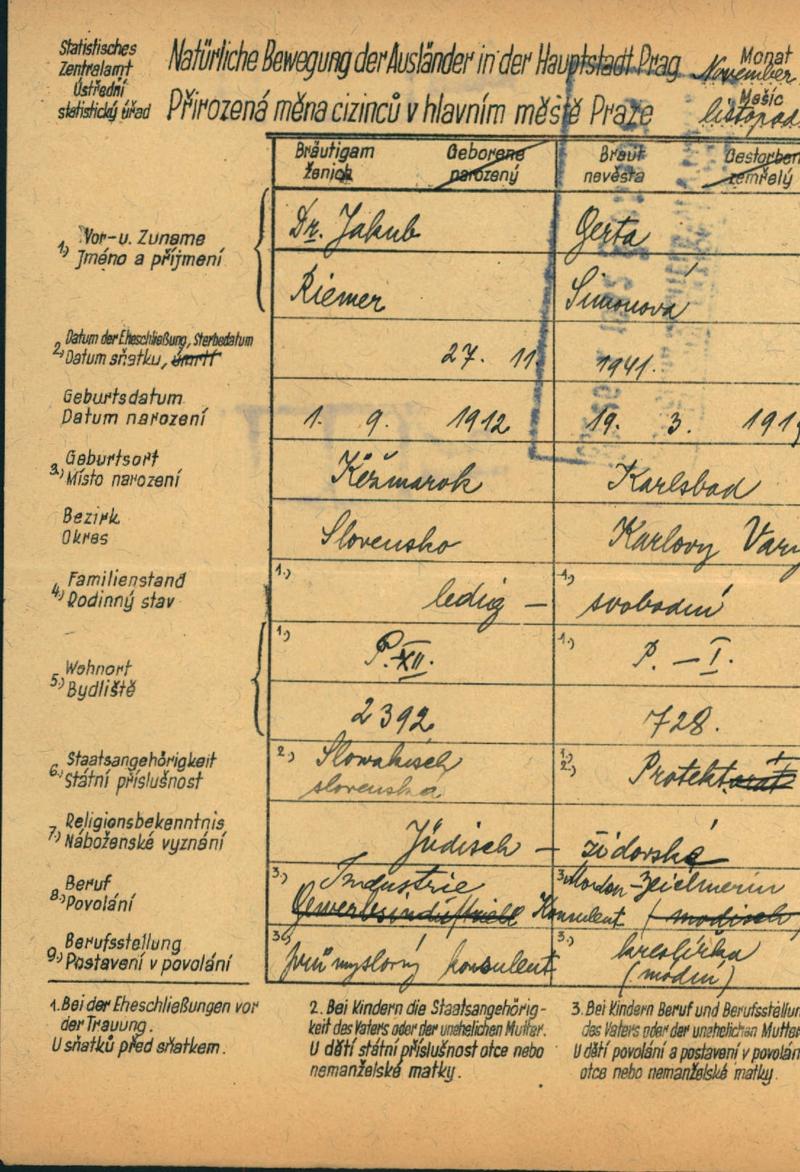 Statistisches
Zentralamt
Ústřední
statistický úřad
Natürliche Bewegung der Ausländer in der Hauptstadt Prag
Přirozená měna cizinců v hlavním městě Praze
Monat
November
Měsíc
listopad
Bräutigam Geborene Braut Gestorben
ženich narozený nevěsta zemřelý
1.) Vor- u. Zuname
Jméno a příjmení
Dr. Jakub Gerta
Riemer Simonová
2.) Datum der Eheschließung, Sterbedatum
Datum sňatku, úmrtí
27. 11. 1941.
Geburtsdatum
Datum narození
1. 9. 1912 19. 3. 191
3.) Geburtsort
Místo narození
Kéžmarok Karlsbad
Bezirk
Okres
Slovensko Karlovy Vary
4.) Familienstand
Rodinný stav
1.) ledig – 1.) svobodní
5.) Wohnort
Bydliště
1.) P. XII. 1.) P. – I.
2392 728.
6.) Staatsangehörigkeit
Státní příslušnost
2.) Slowakisch 1.) 2.) Protektorat
slovenská
7.) Religionsbekenntnis
Náboženské vyznání
Jüdisch – židovská
8.) Beruf
Povolání
3.) Industrie 3.) Zeichnerin
Konsulent (modisch)
9.) Berufsstellung
Postavení v povolání
3.) průmyslový konsulent 3.) kreslířka
(módní)
1. Bei der Eheschließungen vor
der Trauung.
U sňatků před sňatkem.
2. Bei Kindern die Staatsangehörig-
keit des Vaters oder der unehelichen Mutter.
U dětí státní příslušnost otce nebo
nemanželské matky.
3. Bei Kindern Beruf und Berufsstellun
des Vaters oder der unehelichen Mutter
U dětí povolání a postavení v povolán
otce nebo nemanželské matky.